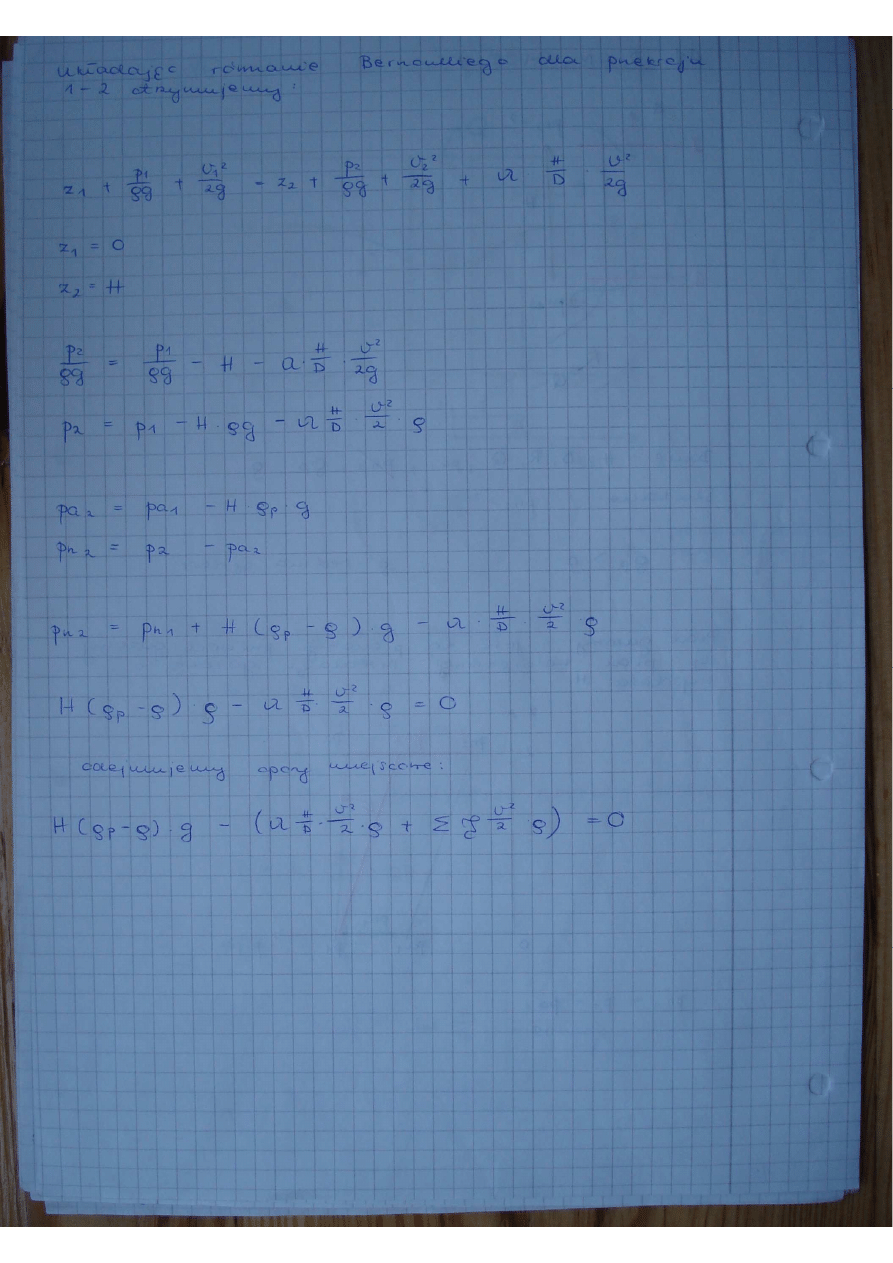 układając równanie Bernoulliego dla przekroju
1-2 otrzymujemy:
z₁ + p₁/ρg + v₁²/2g = z₂ + p₂/ρg + v₂²/2g + λ H/D v²/2g
z₁ = 0
z₂ = H
p₂/ρg = p₁/ρg - H - λ · H/D · v²/2g
p₂ = p₁ - H · ρg - λ H/D · v²/2 · ρ
pa₂ = pa₁ - H ρp · g
pn₂ = p₂ - pa₂
pn₂ = pn₁ + H (ρp - ρ) · g - λ · H/D · v²/2 ρ
H (ρp - ρ) · g - λ H/D · v²/2 · ρ = 0
odejmujemy opory miejscowe:
H (ρp - ρ) · g - (λ H/D · v²/2 · ρ + Σ ζ v²/2 ρ) = 0